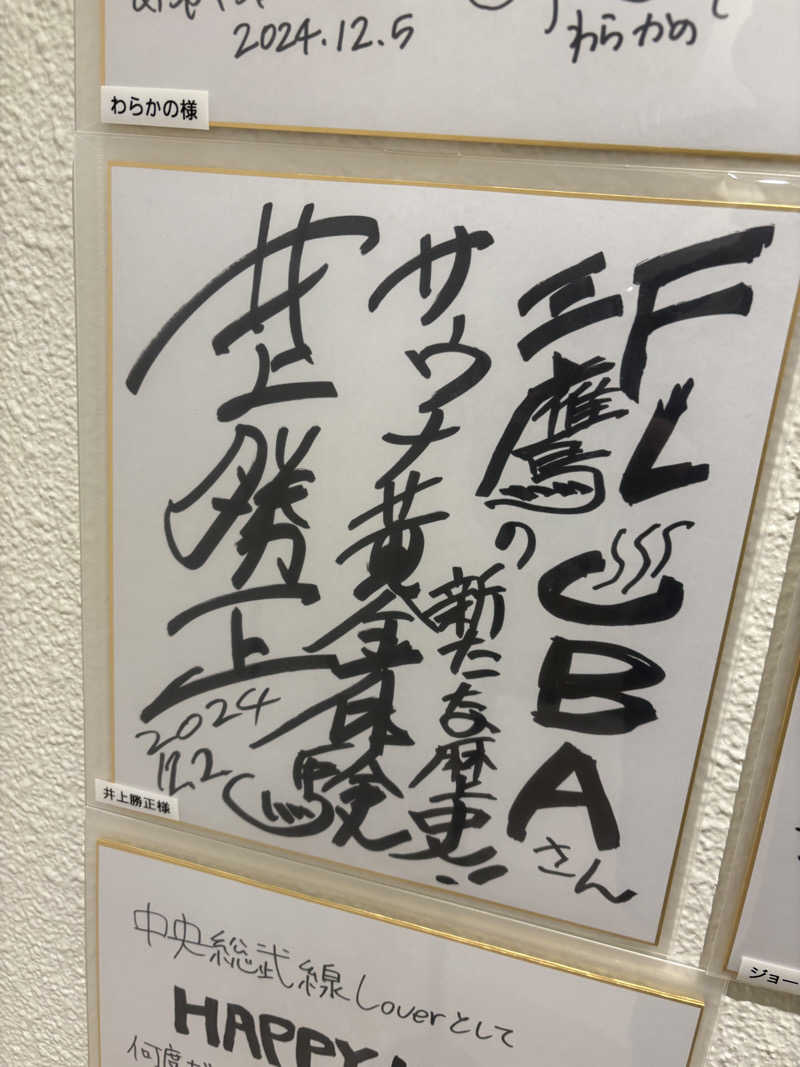 2024.12.5
わらかの
わらかの様
FLUBAさん
三鷹の新たな歴史!!
サウナ黄金体験
井上勝正
2024
12.2
井上勝正様
中央総武線Loverとして
HAPPY
何度
ジョー